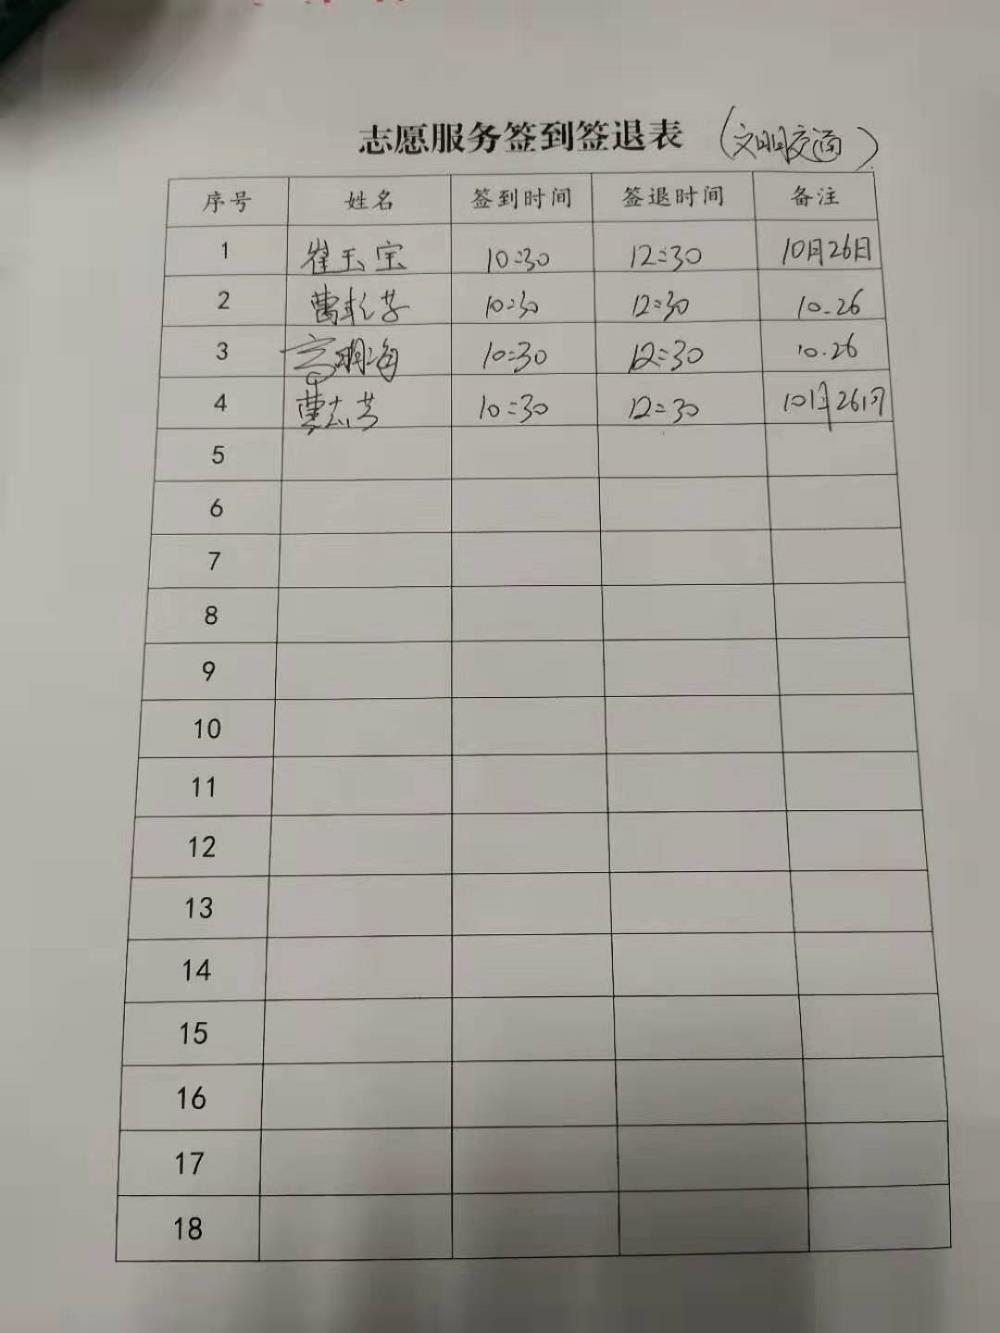 志愿服务签到签退表 (文明交通)
序号 姓名 签到时间 签退时间 备注
1 崔玉宝 10:30 12:30 10月26日
2 曹 10:30 12:30 10.26
3 高明海 10:30 12:30 10.26
4 曹志芳 10:30 12:30 10月26日
5
6
7
8
9
10
11
12
13
14
15
16
17
18